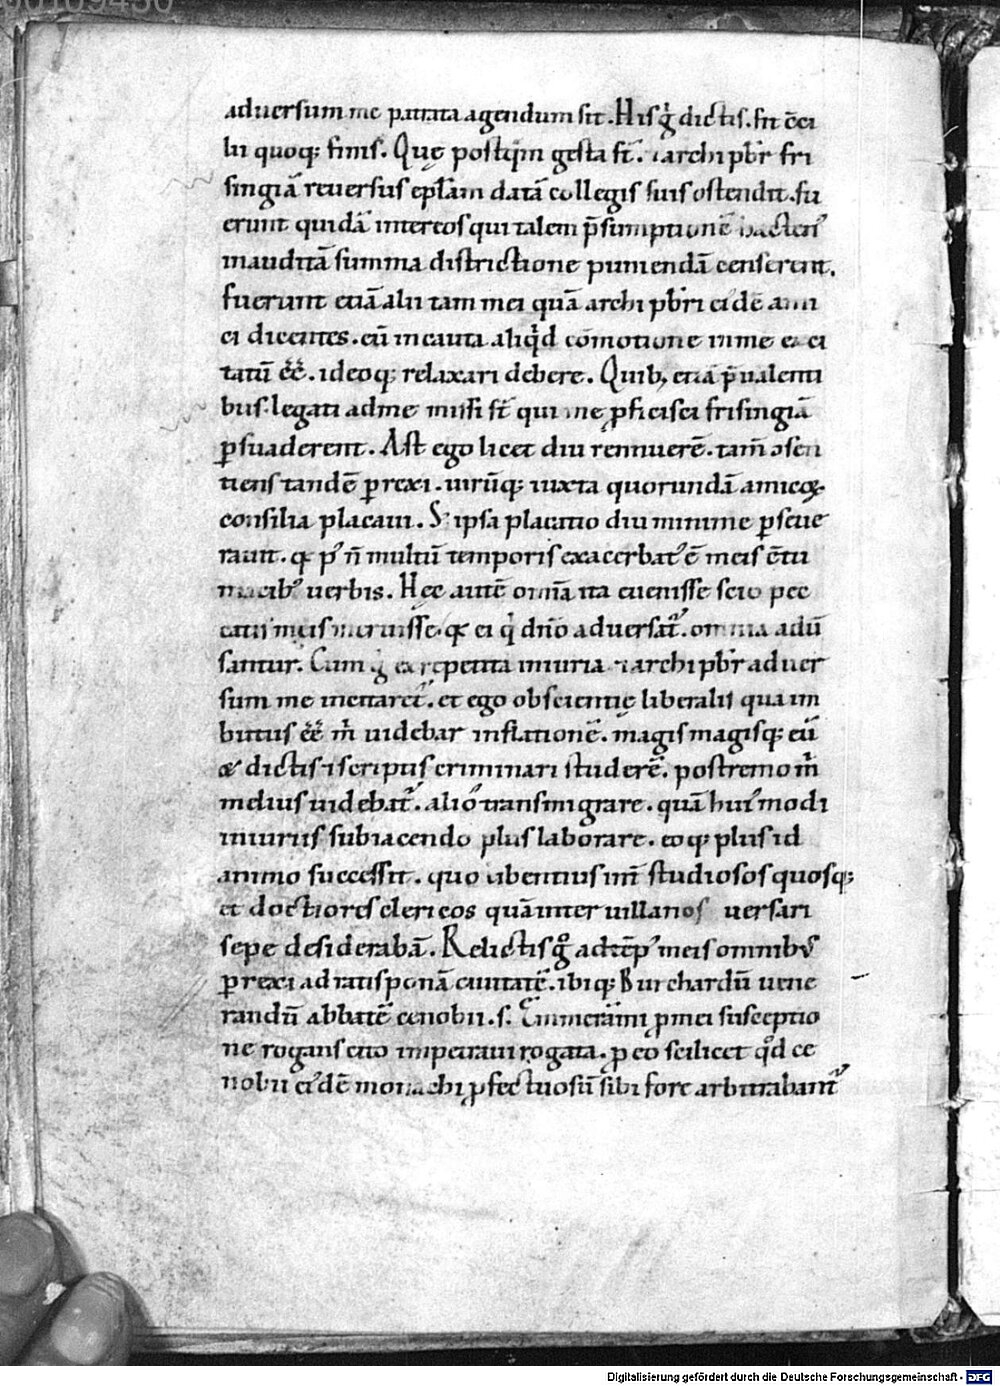 00109430
aduersum me patrata agendum sit. His g̊ dictis. fit c̄ci
lii quoq; finis. Quę postq̄m gesta st̄. archi pbr̄ fri
singiā reuersus epl̄am datā collegis suis ostendit. fu
erunt quidā inter eos qui talem p̄sumptionē hacten᾽
inauditā summa districtione puniendā censerent.
fuerunt etiā alii tam mei quā archi pbr̄i eidē ami
ci dicentes. eū incauta aliq̇d cōmotione in me
tatū ēē. ideoq; relaxari debere. Quib; etiā p̄ualenti
bus. legati ad me missi st̄ qui me ꝓficisci frisingiā
ꝑsuaderent. Ast ego licet diu rennuerē. tam̄ ↄsen
tiens tandē ꝑrexi. uirūq; iuxta quorundā amicoꝝ
consilia placaui. S; ipsa placatio diu minime ꝑseue
rauit. qa p᾽ n̄ multū temporis exacerbat᾽ ē meis c̄tu
macib᾽ uerbis. Hęc autē omīa ita euenisse scio pec
catis meis meruisse. qa ei q̇ dn̄o aduersat᾽. omnia adū
santur. Cum g̊ ex repetita iniuria archi pbr̄ aduer
sum me incitaret᾽. et ego ob scientię liberalis qua im
butus ēē m̊ uidebar inflationē. magis magisq; eū
& dictis ⁊ scriptis criminari studerē. postremo m̊
melius uidebat᾽. aliō transmigrare. quā hui᾽modi
iniuriis subiacendo plus laborare. eoq; plus id
animo successit. quo libentius int̄ studiosos quosq;
et doctiores clericos quā inter uillanos uersari
sepe desiderabā. Relictis g̊ ad tēp᾽ meis omnib᾽
ꝑrexi ad ratisponā ciuitatē. ibiq; Burchardū uene
randū abbatē cenobii. s. Emmerāmi ꝓ mei susceptio
ne rogans cito impetraui rogata. ꝑ eo scilicet qd̄ ce
nobii ei᾽dē monachi ꝓfectuosū sibi fore arbitrabant᾽
Digitalisierung gefördert durch die Deutsche Forschungsgemeinschaft - DFG